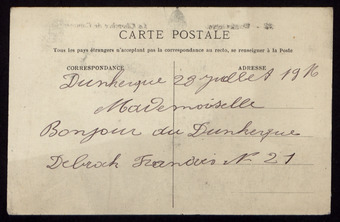 CARTE POSTALE
Tous les pays étrangers n'acceptant pas la correspondance au recto, se renseigner à la Poste
CORRESPONDANCE
ADRESSE
Dunkerque 23 juillet 1916
Mademoiselle
Bonjour du Dunkerque
Debrah Francois N. 21